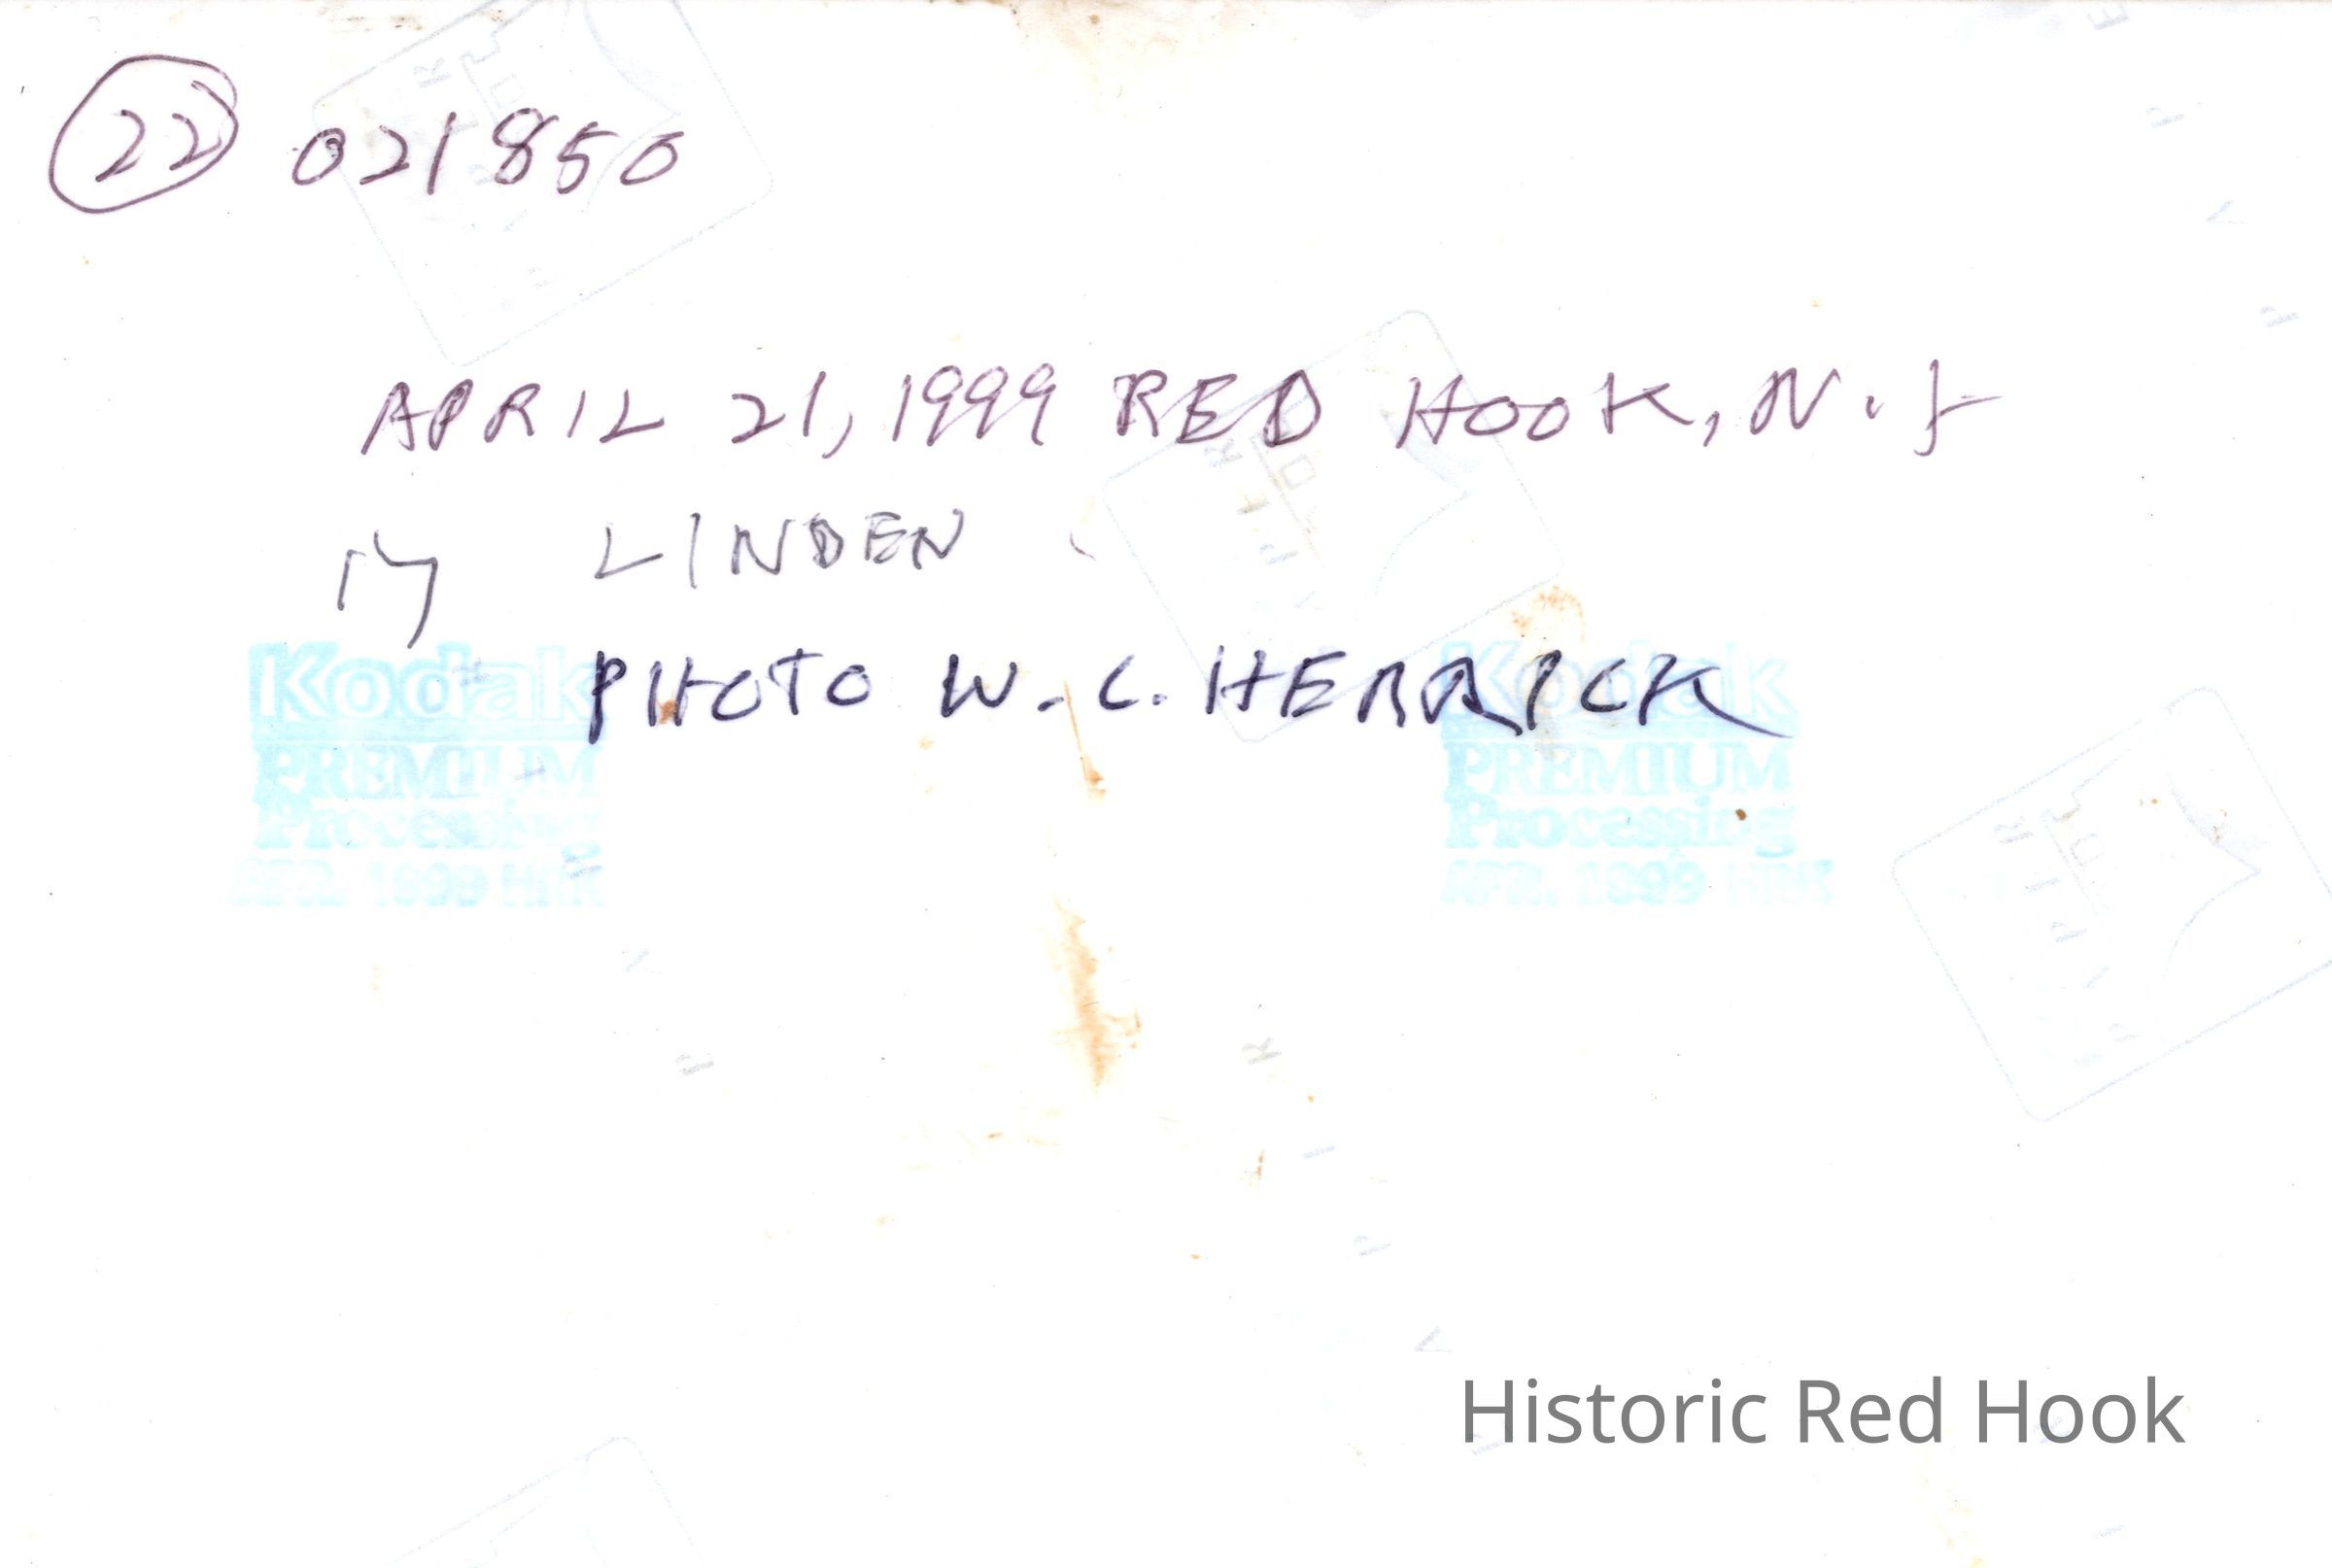 22 021850
APRIL 21, 1999 RED HOOK, N.Y
LINDEN
PHOTO W.C. HERRICK
Kodak Kodak
PREMIUM PREMIUM
Processing Processing
APR. 1999 APR. 1999
Historic Red Hook